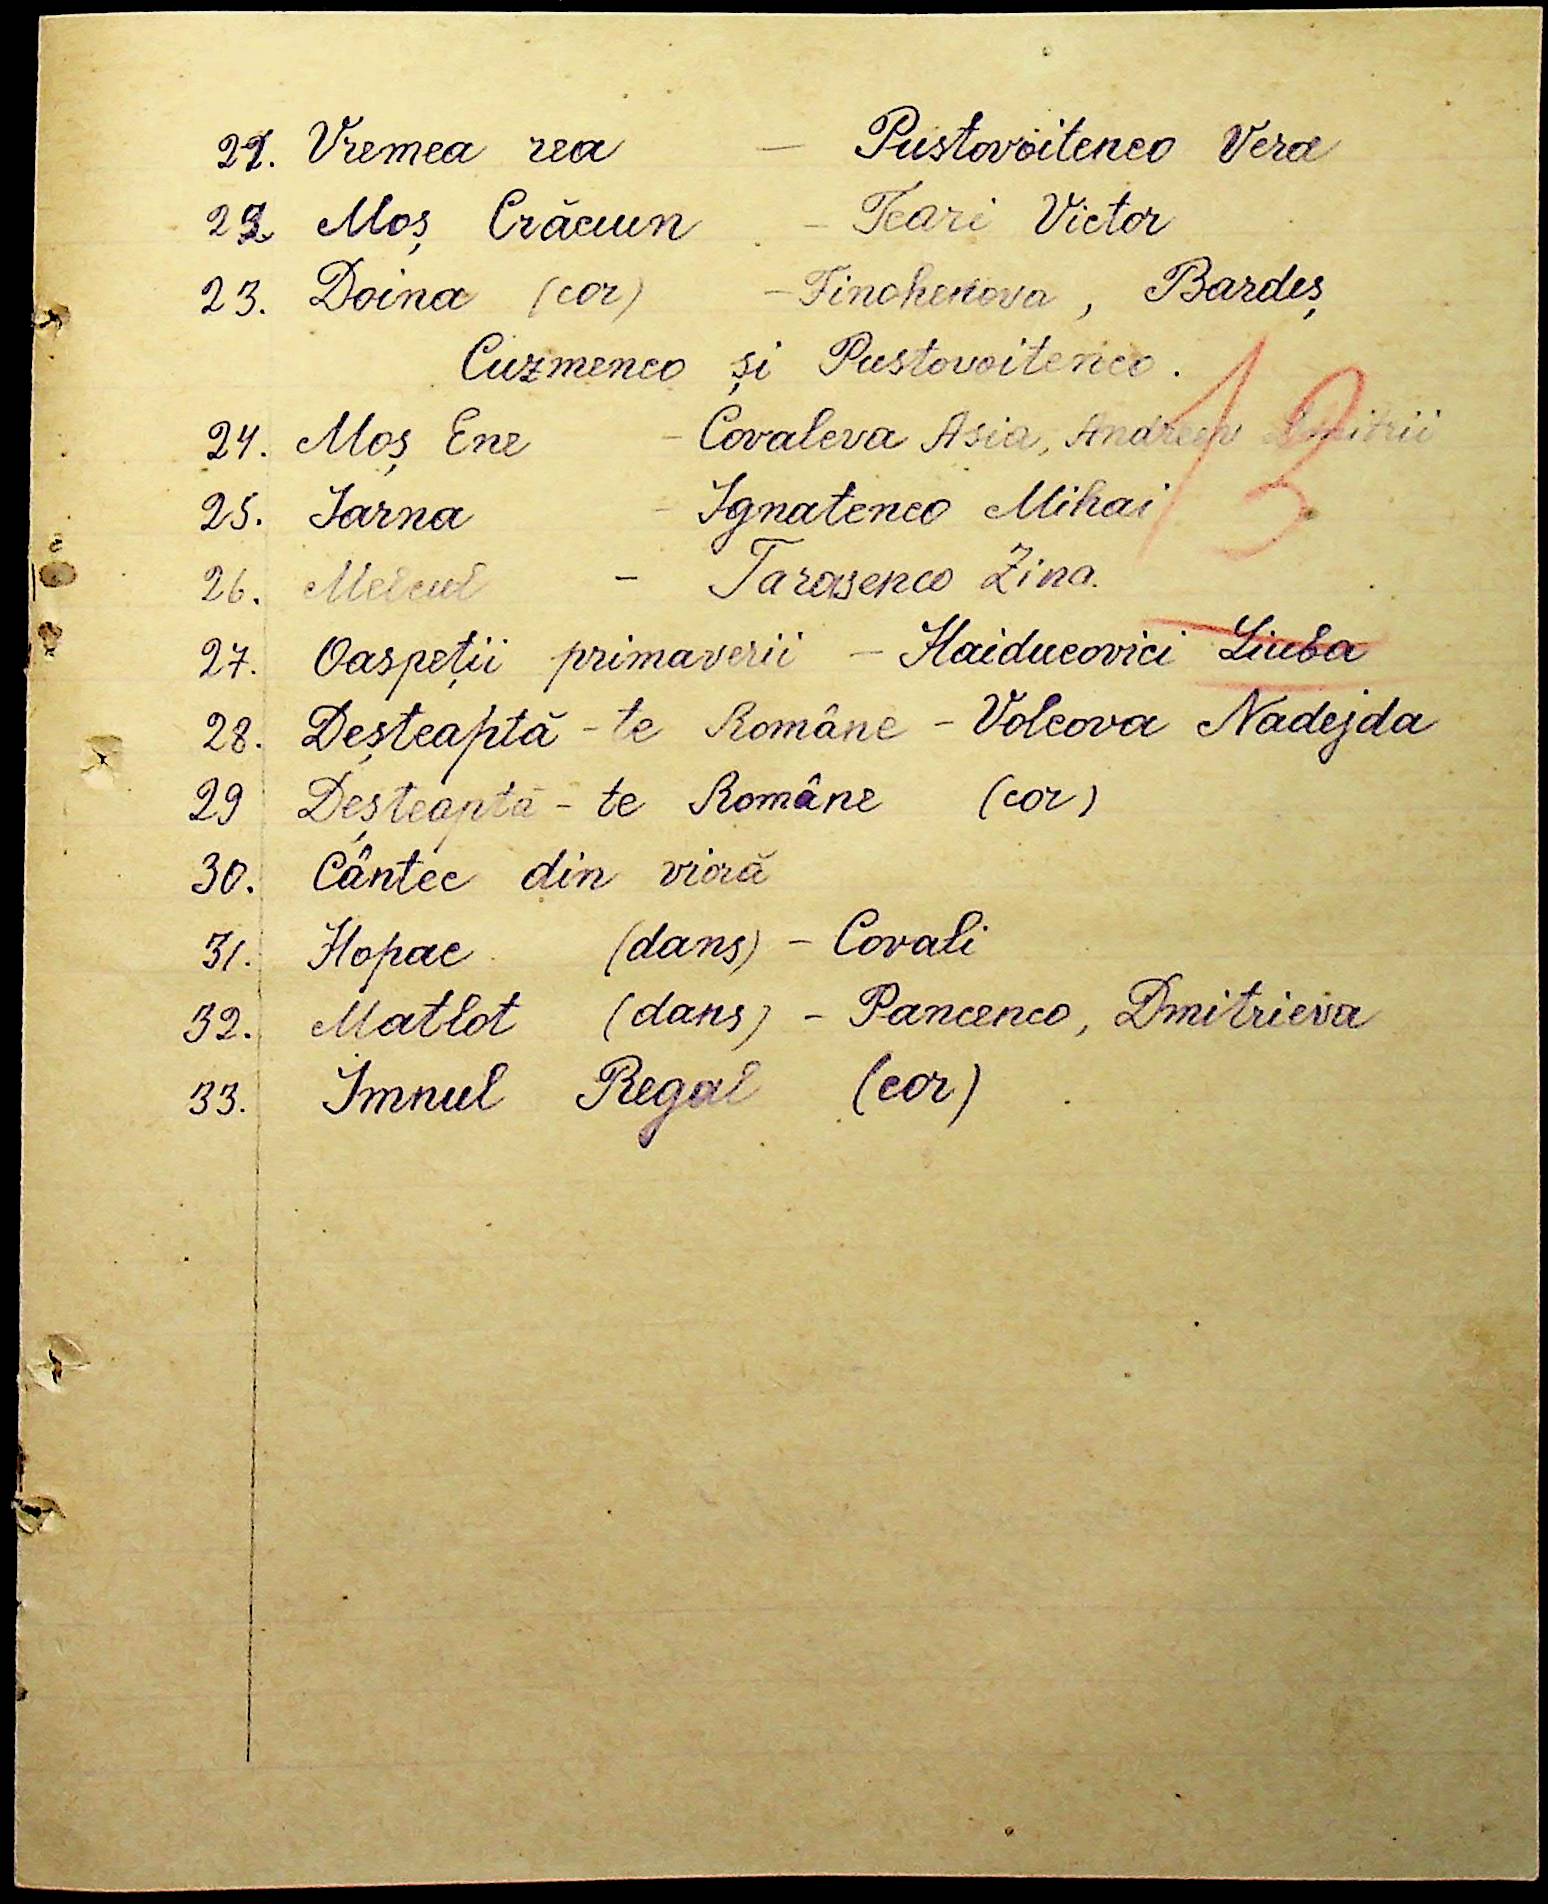 21. Vremea rea — Pustovoitenco Vera
22. Moș Crăciun – Tcari Victor
23. Doina (cor) – Tinohenova, Bardeș
Cuzmenco și Pustovoitenco.
24. Moș Ene – Covaleva Asia, Andreev Dmitrii
13
25. Iarna – Ignatenco Mihai
26. Melcul – Tarasenco Zina.
27. Oaspeții primaverii – Haiducovici Liuba
28. Deșteaptă-te Române – Volcova Nadejda
29 Deșteaptă-te Române (cor)
30. Cântec din vioră
31. Hopac (dans) – Covali
32. Matlot (dans) – Pancenco, Dmitrieva
33. Imnul Regal (cor)